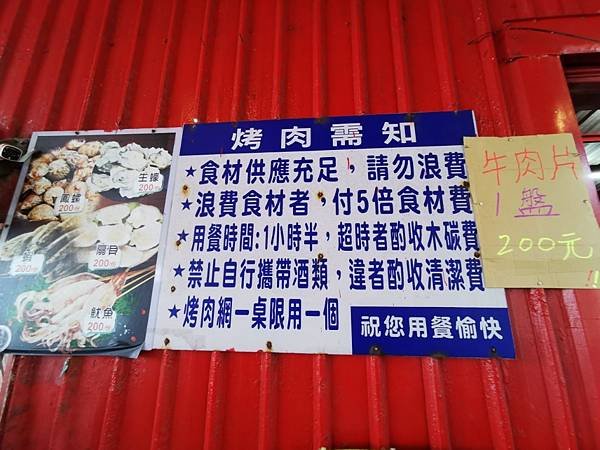 烤肉需知
★食材供應充足，請勿浪費
★浪費食材者，付5倍食材費
★用餐時間:1小時半，超時者酌收木碳費
★禁止自行攜帶酒類，違者酌收清潔費
★烤肉網一桌限用一個
祝您用餐愉快
生蠔
200
鳳螺
200
扇貝
200
200
魷魚
200
牛肉片
1盤
200元